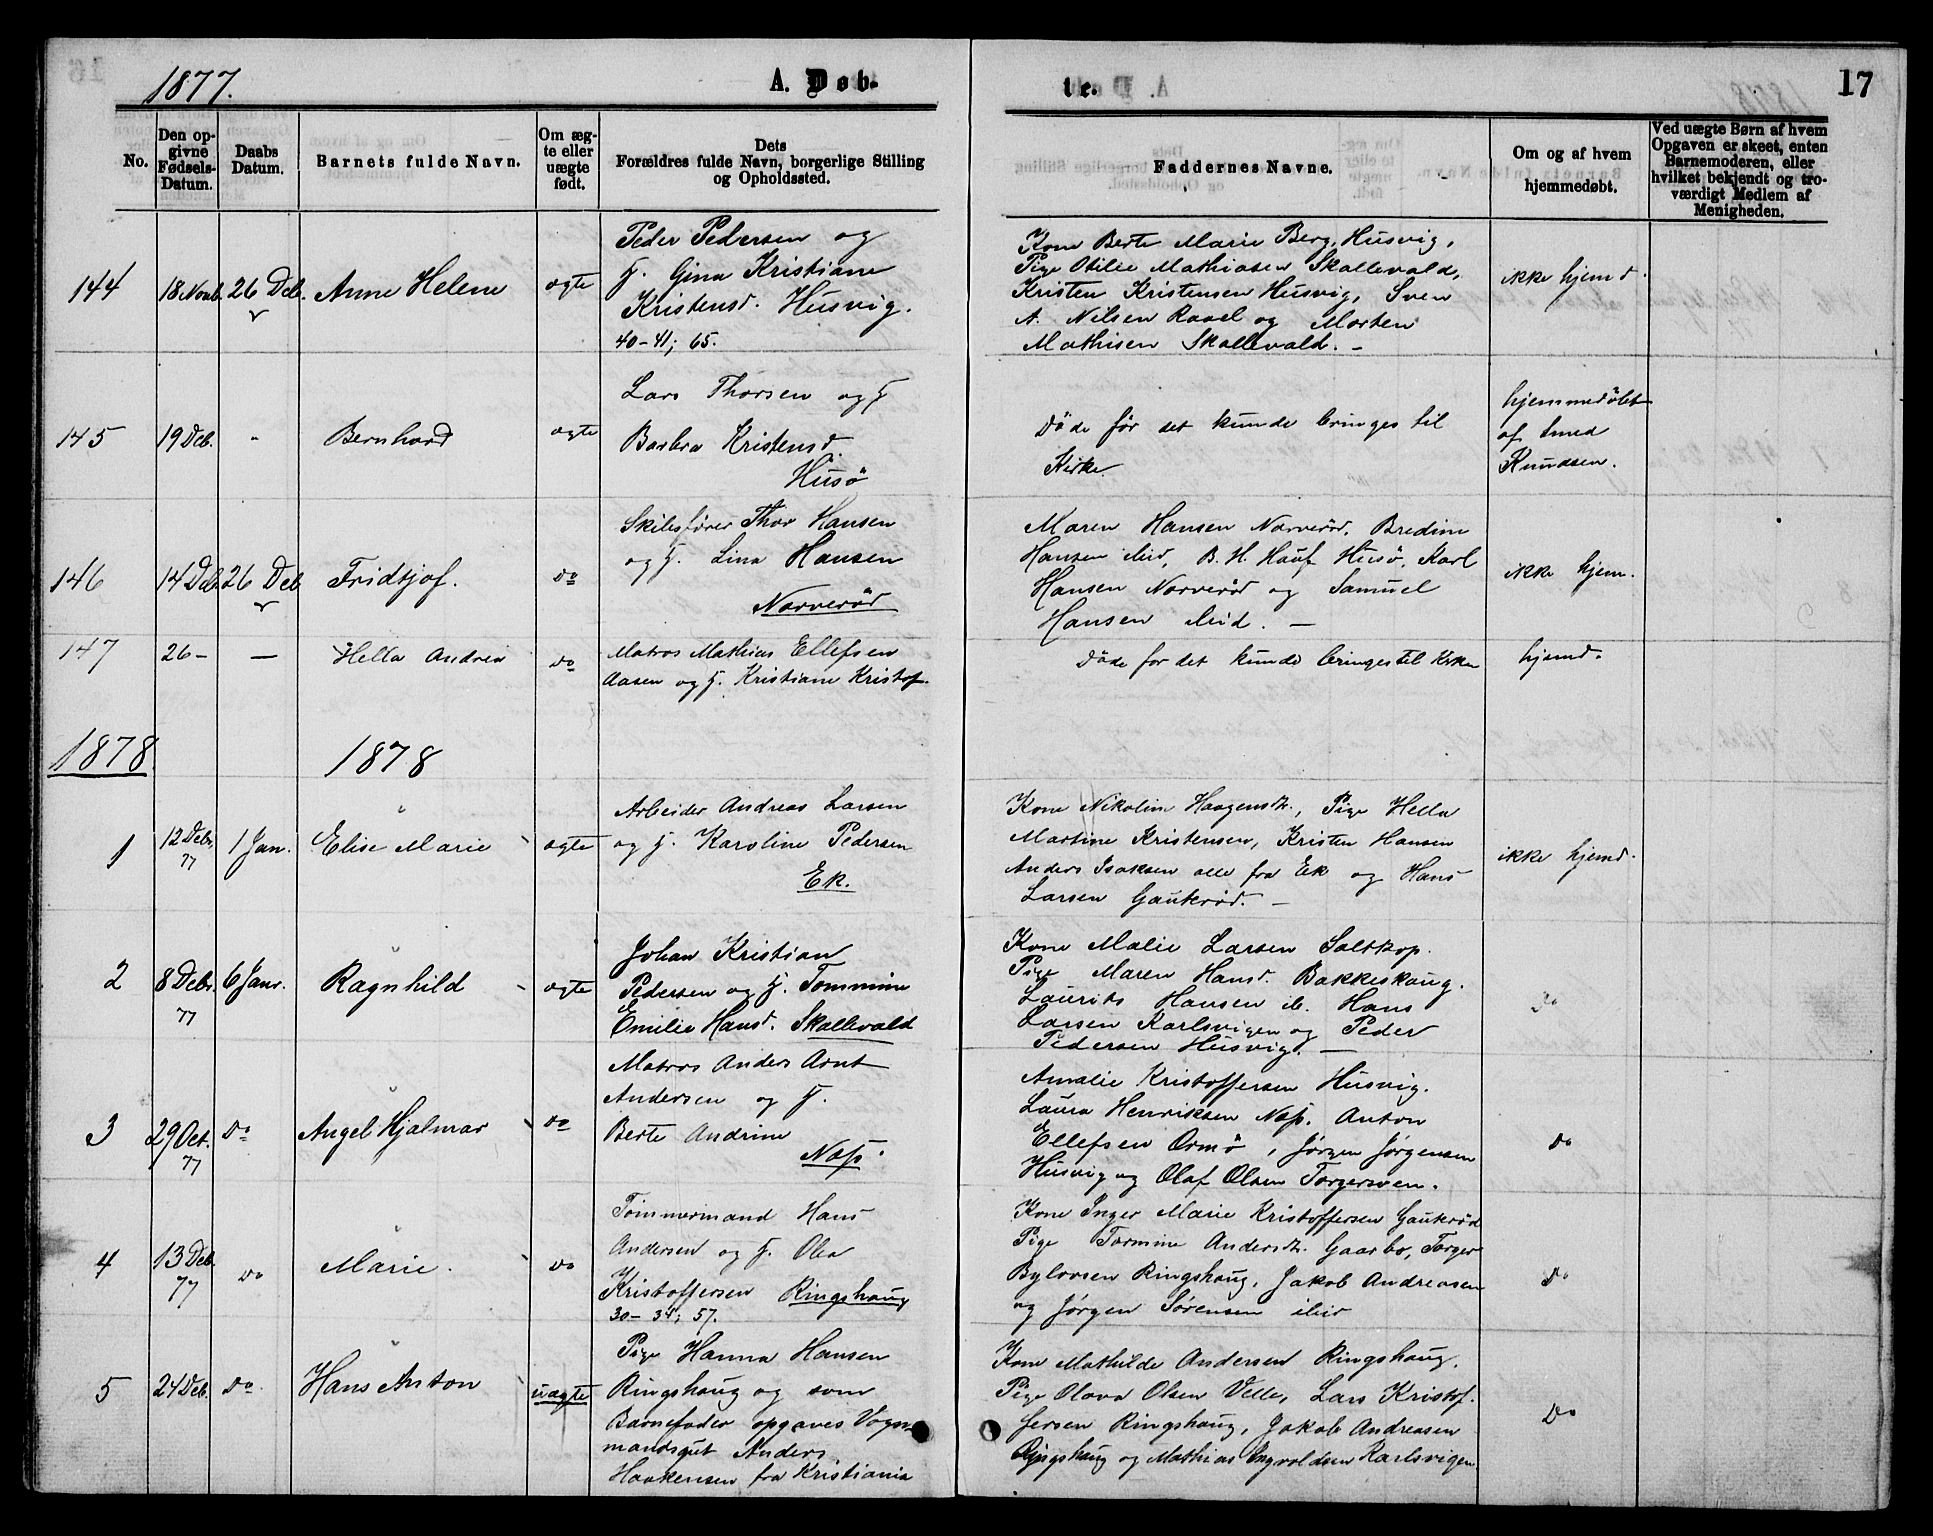 1877.
A. Døb-
te.
17
No.
Den op-
givne
Fødsels-
Datum.
Daabs
Datum.
Barnets fulde Navn.
Om æg-
te eller
uægte
født.
Dets
Forældres fulde Navn, borgerlige Stilling
og Opholdssted.
Faddernes Navne.
Om og af hvem
hjemmedøbt.
Ved uægte Børn af hvem
Opgaven er skeet, enten
Barnemoderen, eller
hvilket bekjendt og tro-
værdigt Medlem af
Menigheden.
144
18 Novb.
26 Deb.
Anne Helene
ægte
Peder Pedersen og
H. Gina Kristiane
Kristensd. Husvig.
40-41; 65.
Kone Berte Marie Berg, Husvig,
Pige Otilie Mathiasen Skallevald,
Kristen Kristensen Husvig, Sven
A. Nilsen Raael og Morten
Mathisen Skallevald. -
ikke hjemd.
145
19 Deb.
"
Bernhard
ægte
Lars Thorsen og H
Barbra Kristensd.
Husö
Døde før det kunde bringes til
Kirke.
hjemmedöbt
af Smed
Knudsen.
146
14 Deb.
26 Deb
Fridtjof.
do
Skibsfører Thor Hansen
og H. Lina Hansen
Narverød
Maren Hansen Narverød, Bredine
Hansen ibid, B. H. Hauf Husö, Karl
Hansen Narverød og Samuel
Hansen ibid. -
ikke hjem.
147
26 -
—
Hella Andrea
do
Matros Mathias Ellefsen
Aasen og H. Kristiane Kristof.
Døde før det kunde bringes til Kirken
hjemd.
1878
1878
1
12 Debr.
77
1 Jan.
Elise Marie
ægte
Arbeider Andreas Larsen
og H. Karoline Pedersen
Ek.
Kone Nikoline Haagensdt., Pige Hella
Martine Kristensen, Kristen Hansen
Anders Isaksen alle fra Ek og Hans
Larsen Gaukerød. -
ikke hjemd.
2
8 Debr.
77
6 Janr.
Ragnhild
ægte
Johan Kristian
Pedersen og H. Tommine
Emilie Hansd. Skallevald
Kone Malie Larsen Saltkop.
Pige Maren Hansd. Bakkeskaug.
Laurits Hansen ib. Hans
Larsen Karlsvigen og Peder
Pedersen Husvig. -
do
3
29 Oct.
77
do
Angel Hjalmar
do
Matros Anders Arnt
Andersen og H.
Berte Andrine
Næs.
Amalie Kristoffersen Husvig.
Laura Henriksen Næs. Anton
Ellefsen Ormö, Jørgen Jørgensen
Husvig og Olaf Olsen Torgersøen.
do
4
13 Deb.
77
do
Marie.
do
Tømmermand Hans
Andersen og H. Olea
Kristoffersen Ringshaug
30-35; 57.
Kone Inger Marie Kristoffersen Gaukerød
Pige Tormine Andersdt. Gaarbo, Torger
Bylovsen Ringshaug, Jakob Andreasen
og Jørgen Sørensen ibid
do
5
24 Deb.
do.
Hans Anton
uægte
Pige Hanna Hansen
Ringshaug og som
Barnefader opgaves Vogn-
mandsgut Anders
Haakensen fra Kristiania
Kone Mathilde Andersen Ringshaug.
Pige Olava Olsen Velle, Lars Kristof-
fersen Ringshaug, Jakob Andreasen
Ringshaug og Mathias Engvoldsen Karlsvigen
do